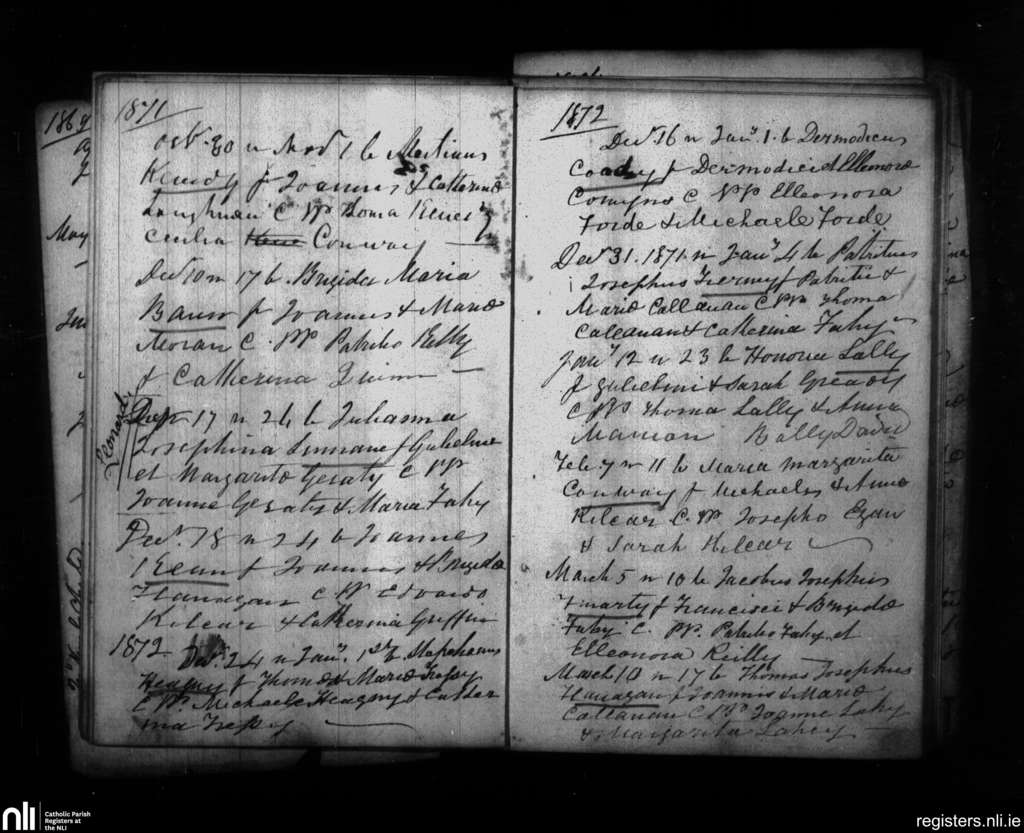 1869
May
1871
Octr. 30 n Novr 1 b Martinus
Kennedy f Joannis & Catherina
Loughnan C. PP Thoma
Cecilia Conway
Decr 10 n 17 b Brigida Maria
f Joannis & Maria
Moran C. PP Patritio Reilly
& Catherina Quinn
Leonard
17 n 24 b Julianna
Josephina Linnane f Gulielmi
et Margarita Geraty C PP
Joanne Geraty & Maria Fahy
Decr. 18 n 24 b Joannes
Egan f Joannis & Brigida
Flannagan C PP Edvardo
Kilcar & Catherina Griffin
1872 Decr. 24 n Jany. 1st b Stephanus
Heagny f Thoma & Maria
C PP. Michaele Heagny & Cather
ina
1872
Decr 16 n Jany. 1. b Dermodicus
Coady f Dermodici & Ellenora
Comyns C PP Elleonora
Forde & Michaele Forde
Decr 31. 1871 n Jany 4 b Patritius
Josephus Tierney f Patritii &
Maria Callanan C PP Thoma
Callanan & Catherina Fahy
Jany 12 n 23 b Honoria Lally
f Gulielmi & Sarah Gready
C PP Thoma Lally & Anna
Manion BallyDavid
Feb. 7 n 11 b Maria Margarita
Conway f Michaelis & Anna
Kilcar C. PP Josepho Egan
& Sarah Kilcar
March 5 n 10 b Jacobus Josephus
Finarty f Francisci & Brigida
Fahy C. PP. Patritio Fahy et
Elleonora Reilly
March 10 n 17 b Thomas Josephus
Flanagan f Joannis & Maria
Callanan C PP Joanne Lahy
& Margarita Lahey
nli
Catholic Parish
Registers at
the NLI
registers.nli.ie